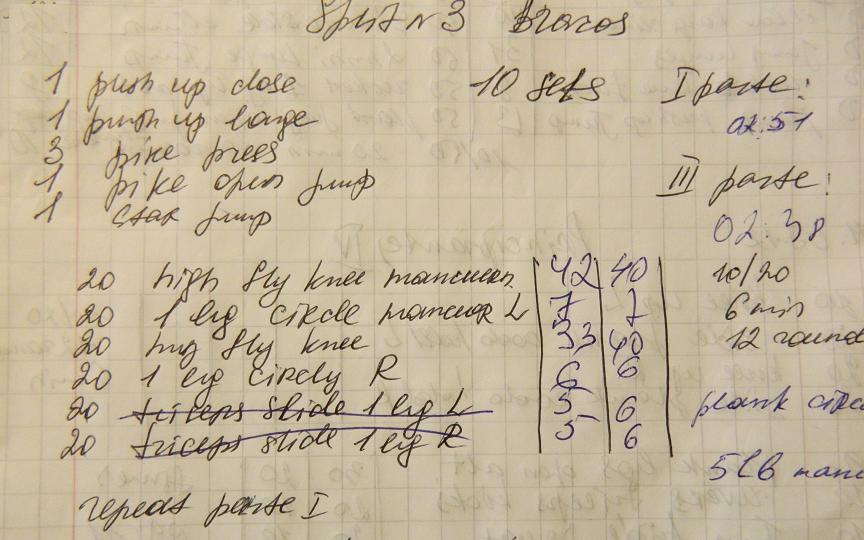 Split n 3
1 push up close 10 sets I parte:
1 push up large 02:51
3 pike press
1 pike open jump III parte:
1 star jump 02:38
20 high fly knee 42 40 10/20
20 1 leg circle L 7 7 6 min
20 fly knee 33 40 12 round
20 1 leg circly R 6 6
20 triceps slide 1 leg L 5 6 plank circ
20 triceps slide 1 leg R 5 6
repeat parte I